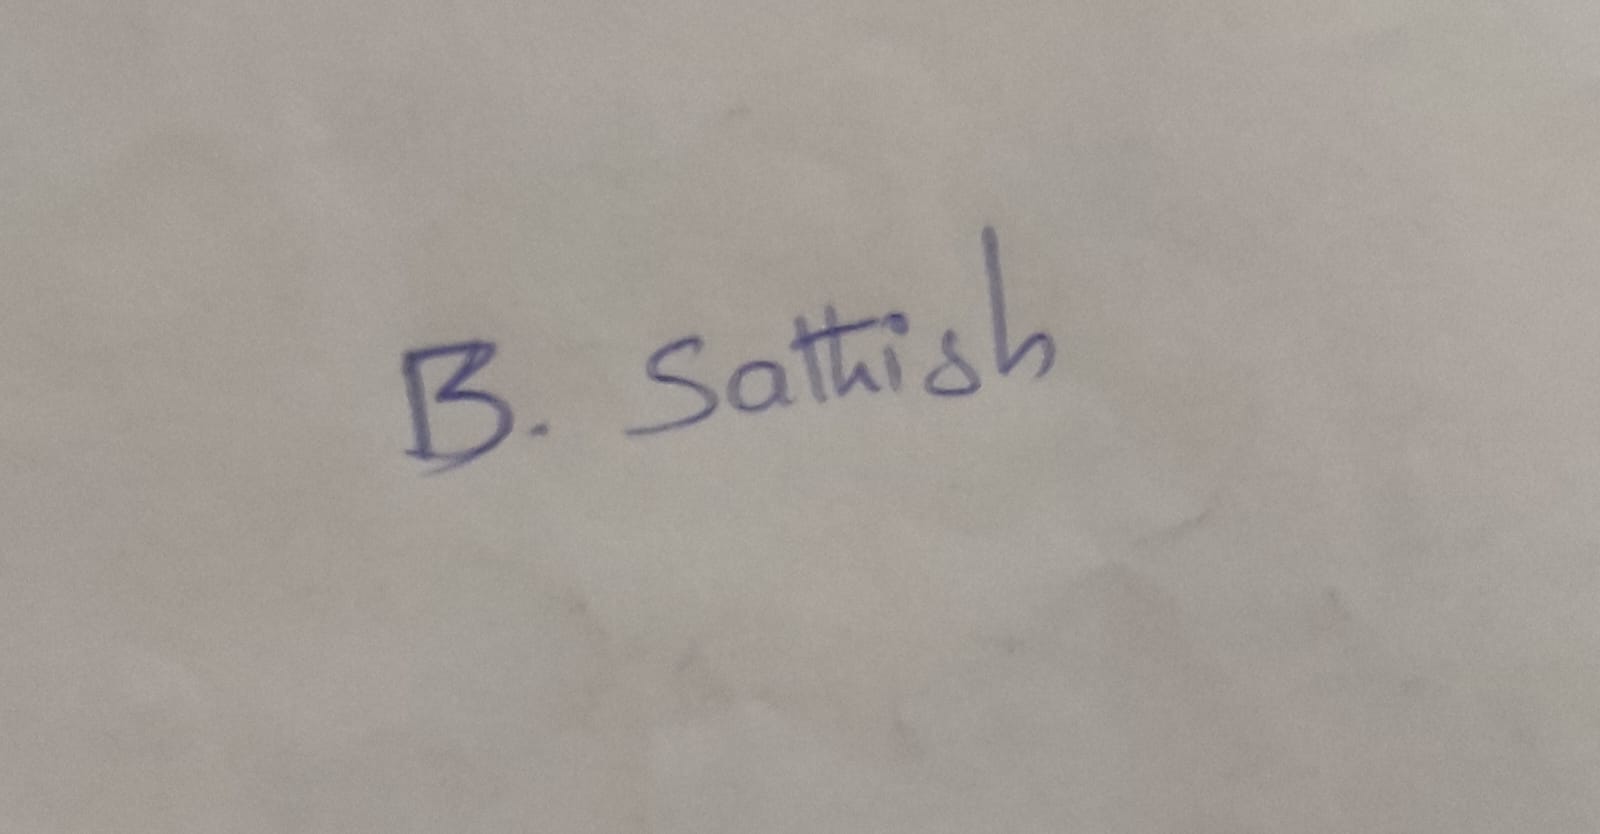 B. Sathish